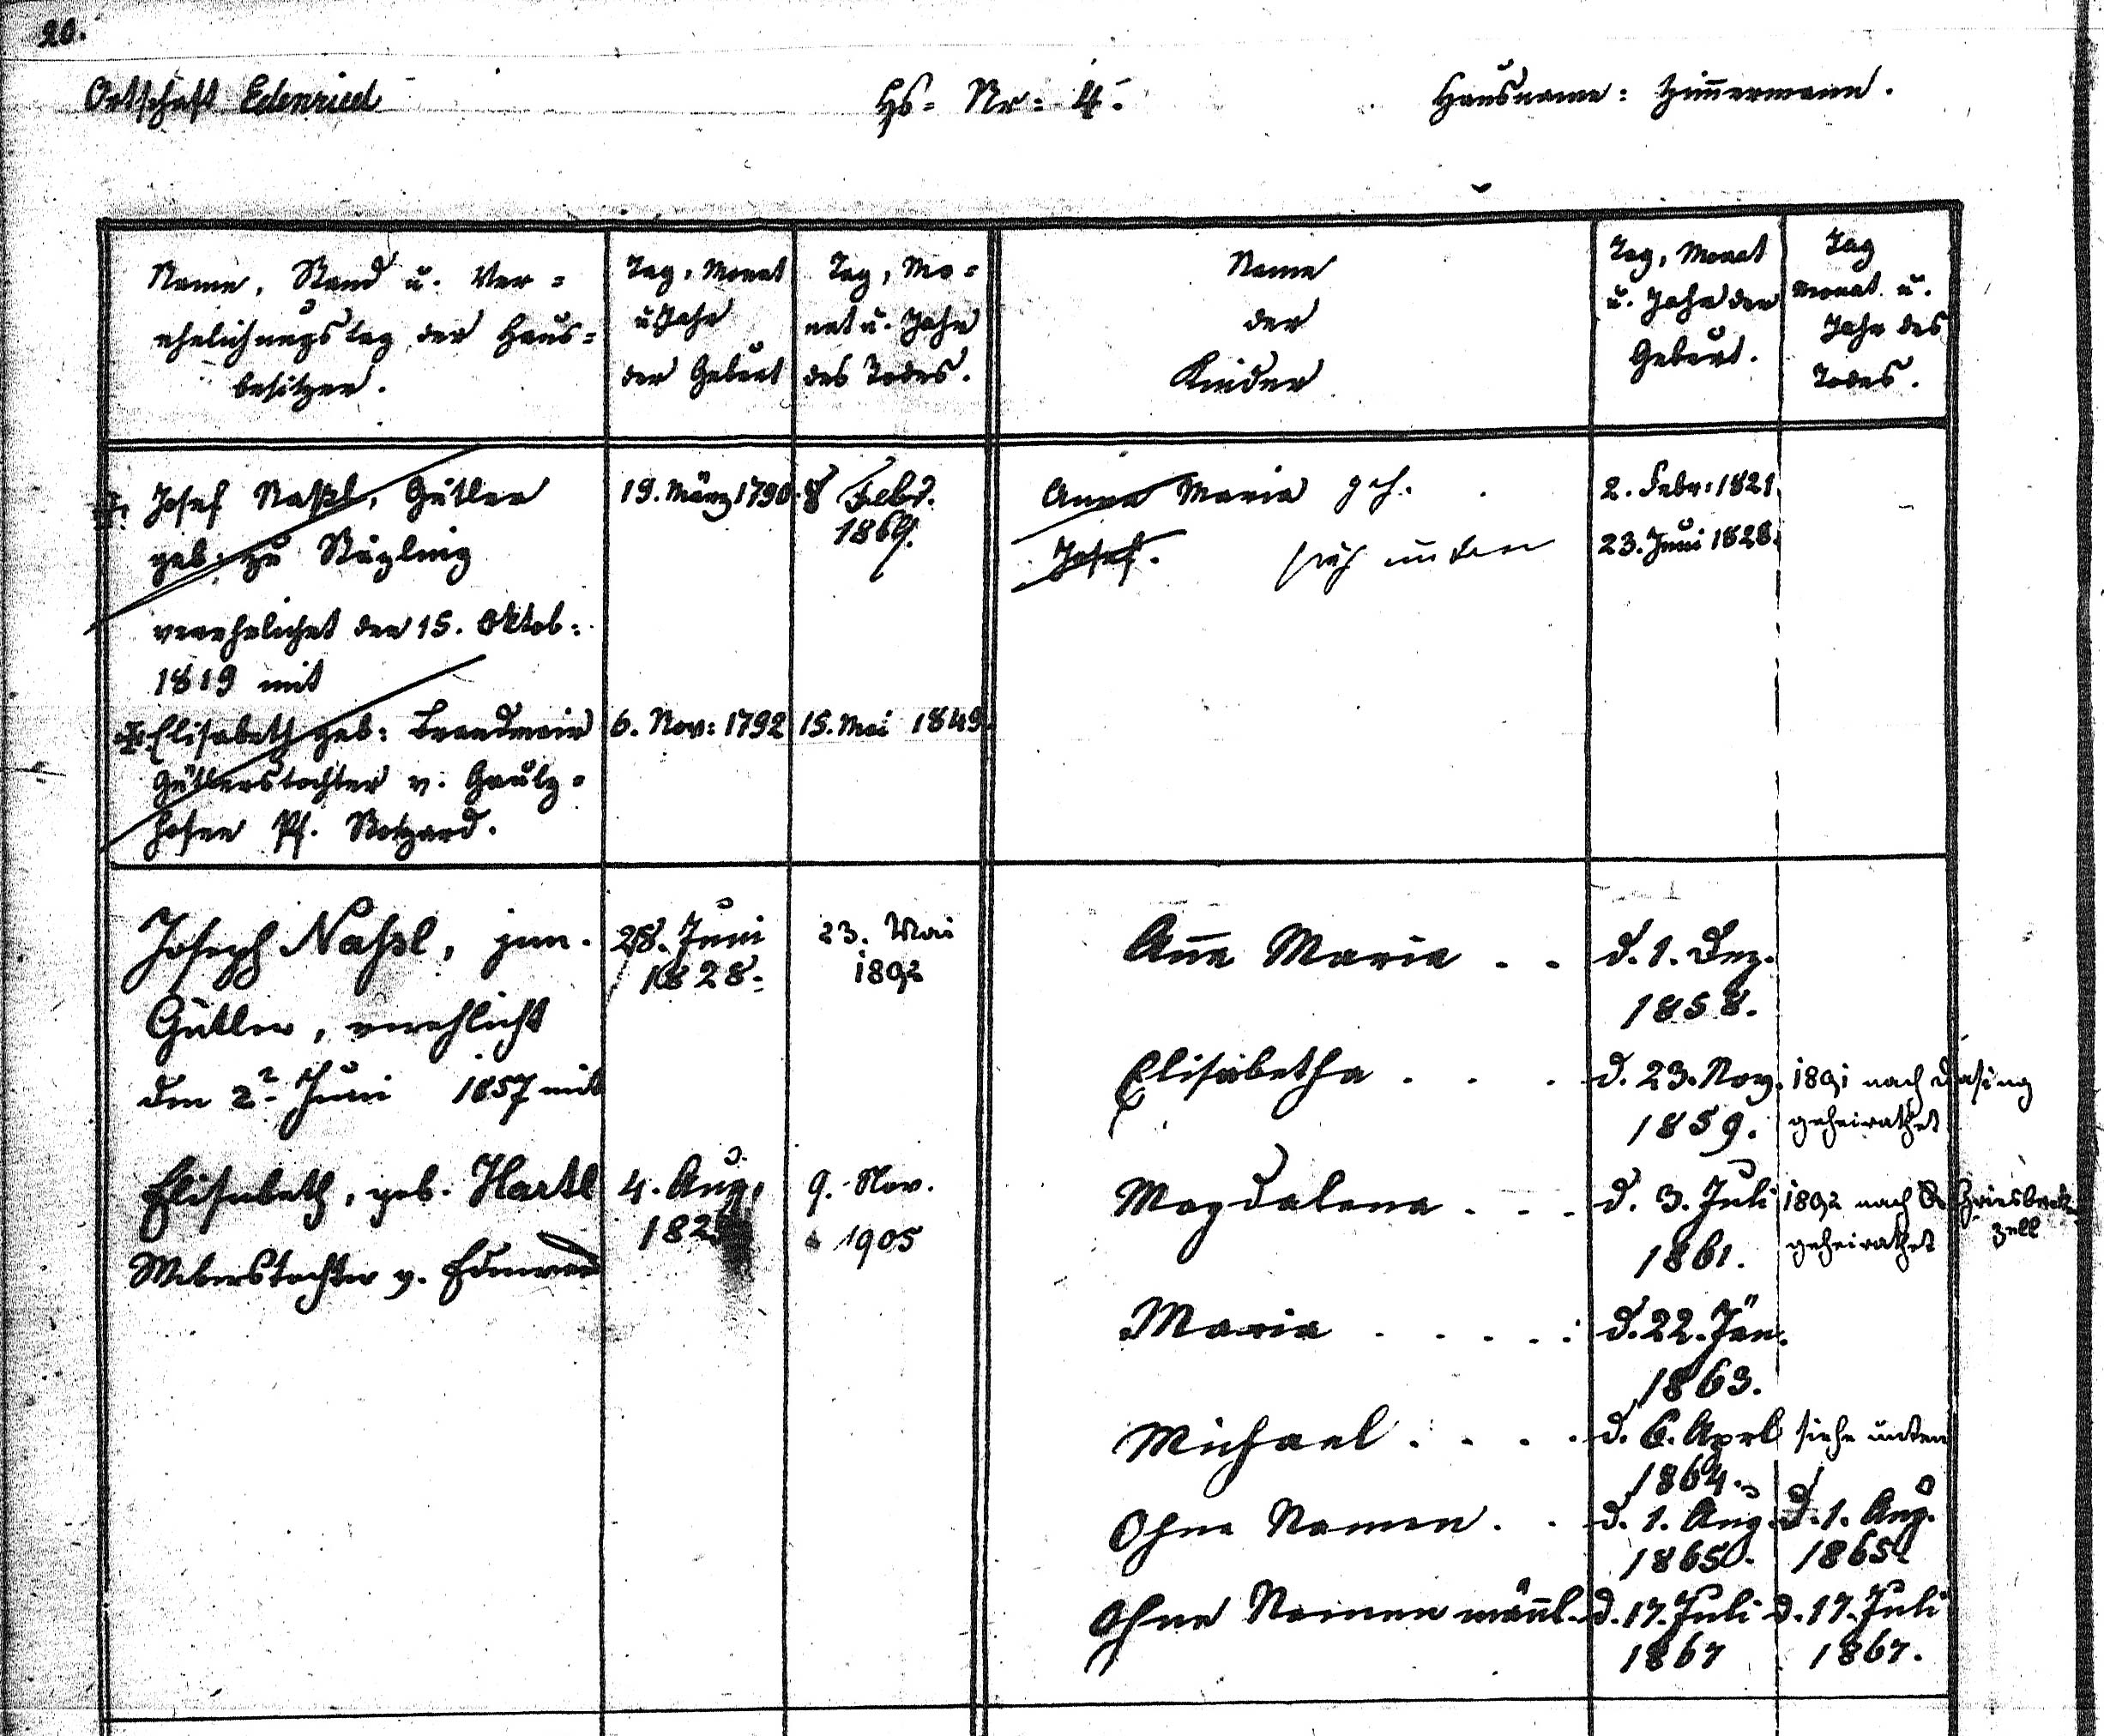 20.
Ortschaft Edenried Hs= Nr: 4. Hausname: Zim̄ermann.
Name, Stand u. Ver=
ehelichungstag der Haus=
besitzer.
Tag, Monat
u Jahr
der Geburt
Tag, Mo=
nat u. Jahr
des Todes.
Name
der
Kinder
Tag, Monat
u. Jahr der
Geburt.
Tag
Monat u.
Jahr des
Todes.
Josef Naßl, Gütler 19. März 1790 8 Febr.
1869.
geb. zu
verehelichet den 15. Oktob:
1819 mit
Elisabeth geb: Brandmair 6. Nov: 1792 15. Mai 1849.
Gütlerstochter v. Gaulz=
hofen Pf.
Anna Maria 2. Febr: 1821
Josef. sieh unten 23. Juni 1828.
Joseph Naßl, jun. 28. Juni 23. Mai
1828. 1892
Gütler, verehlicht
den 2. Juni 1857 mit
Elisabeth, geb. Hartl 4. Aug. 9. Nov.
1905
Weberstochter v.
Am̄a Maria . . d. 1. Dez.
1858.
Elisabetha . . . d. 23. Nov. 1891 nach Dasing
1859. geheirathet
Magdalena . . . d. 3. Juli 1892 nach
1861. geheirathet zell
Maria . . . . : d. 22. Jän.
1863.
Michael . . . . d. 6. Aprl siehe unten
1864.
Ohne Namen . . d. 1. Aug. d. 1. Aug.
1865. 1865.
Ohne Namen män̄l. d. 17. Juli d. 17. Juli
1867 1867.